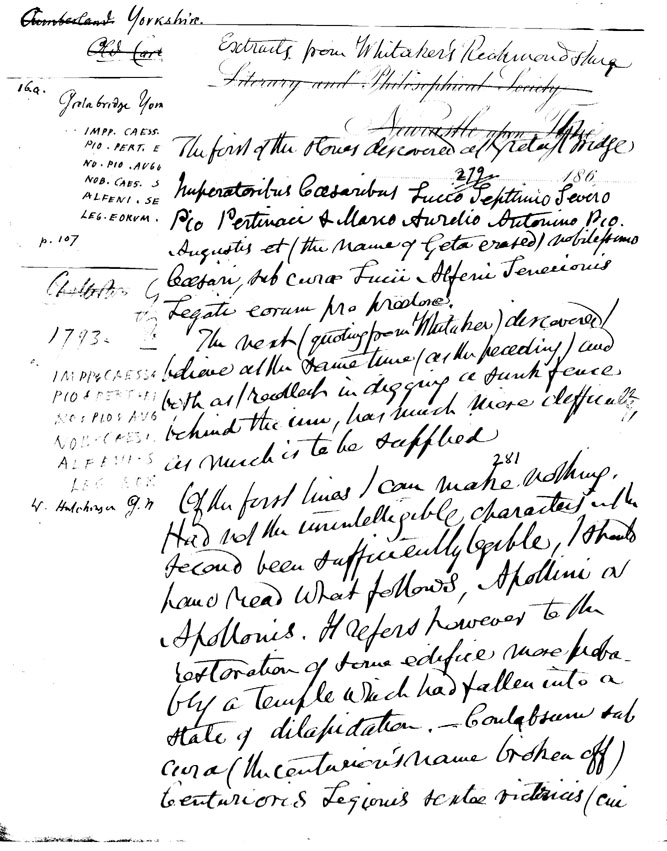 Cumberland Yorkshire.
Old Cart
16a.
Gretabridge York
IMPP. CAESS.
PIO. PERT. E
NO. PIO. AUGG
NOB. CAES. S
ALFENI. SE
LEG. EORUM.
p. 107
1793.
IMPP CAESS
PIO PERTI
NO PIO AUG
NOB CAES.
ALFENI S
LEG EOR
W. Hutchinson G.M
Extracts from Whitaker's Richmondshire
Literary and Philosophical Society
Newcastle upon Tyne
The first of the stones discovered at Greta Bridge
279 186
Imperatoribus Cæsaribus Lucio Septimio Severo
Pio Pertinaci & Marco Aurelio Antonino Pio.
Augustis et (the name of Geta erased) nobilissimo
Cæsari, sub cura Lucii Alfenii Senecionis
Legati eorum pro prætore.
The next (quoting from Whitaker) discovered I
believe at the same time (as the preceding) and
both as I recollect in digging a sunk fence
behind the inn, has much more difficulty,
as much is to be supplied
281
Of the first lines I can make nothing.
Had not the unintelligible characters in the
second been sufficiently legible, I should
have read what follows, Apollini or
Apollonis. It refers however to the
restoration of some edifice more proba-
bly a temple which had fallen into a
state of dilapidation. — Conlabsum sub
cura (the centurion's name broken off)
Centurionis Legionis sextæ victricis (cui